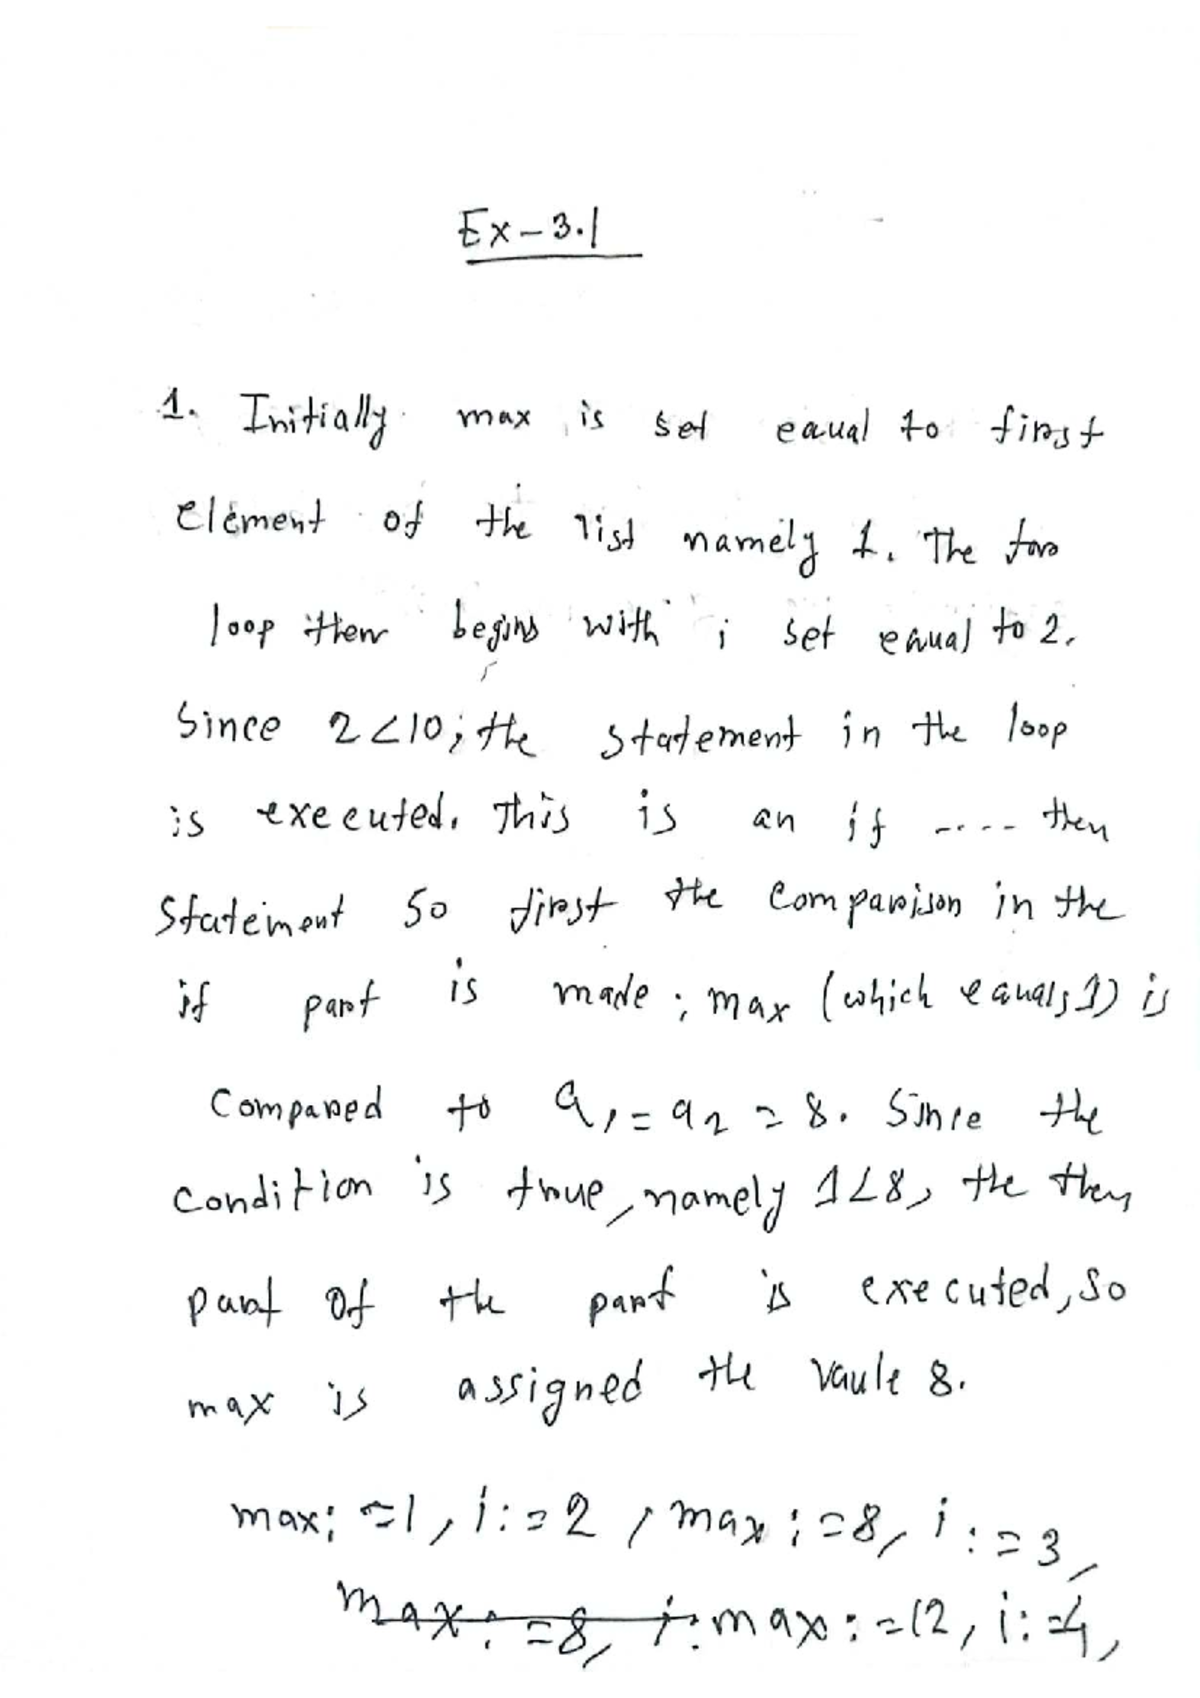 Ex-3.1
1. Initially max is set equal to first
element of the list namely 1. The for
loop then begins with i set equal to 2.
Since 2<10; the statement in the loop
is executed. This is an if .... then
Statement so first the comparison in the
if part is made; max (which equals 1) is
Compared to a₁=a₂=8. Since the
Condition is true, namely 1<8, the then
part of the part is executed, so
max is assigned the vaule 8.
max:=1, i:=2, max:=8, i:=3,
max:=8, i: max:=12, i:=4,